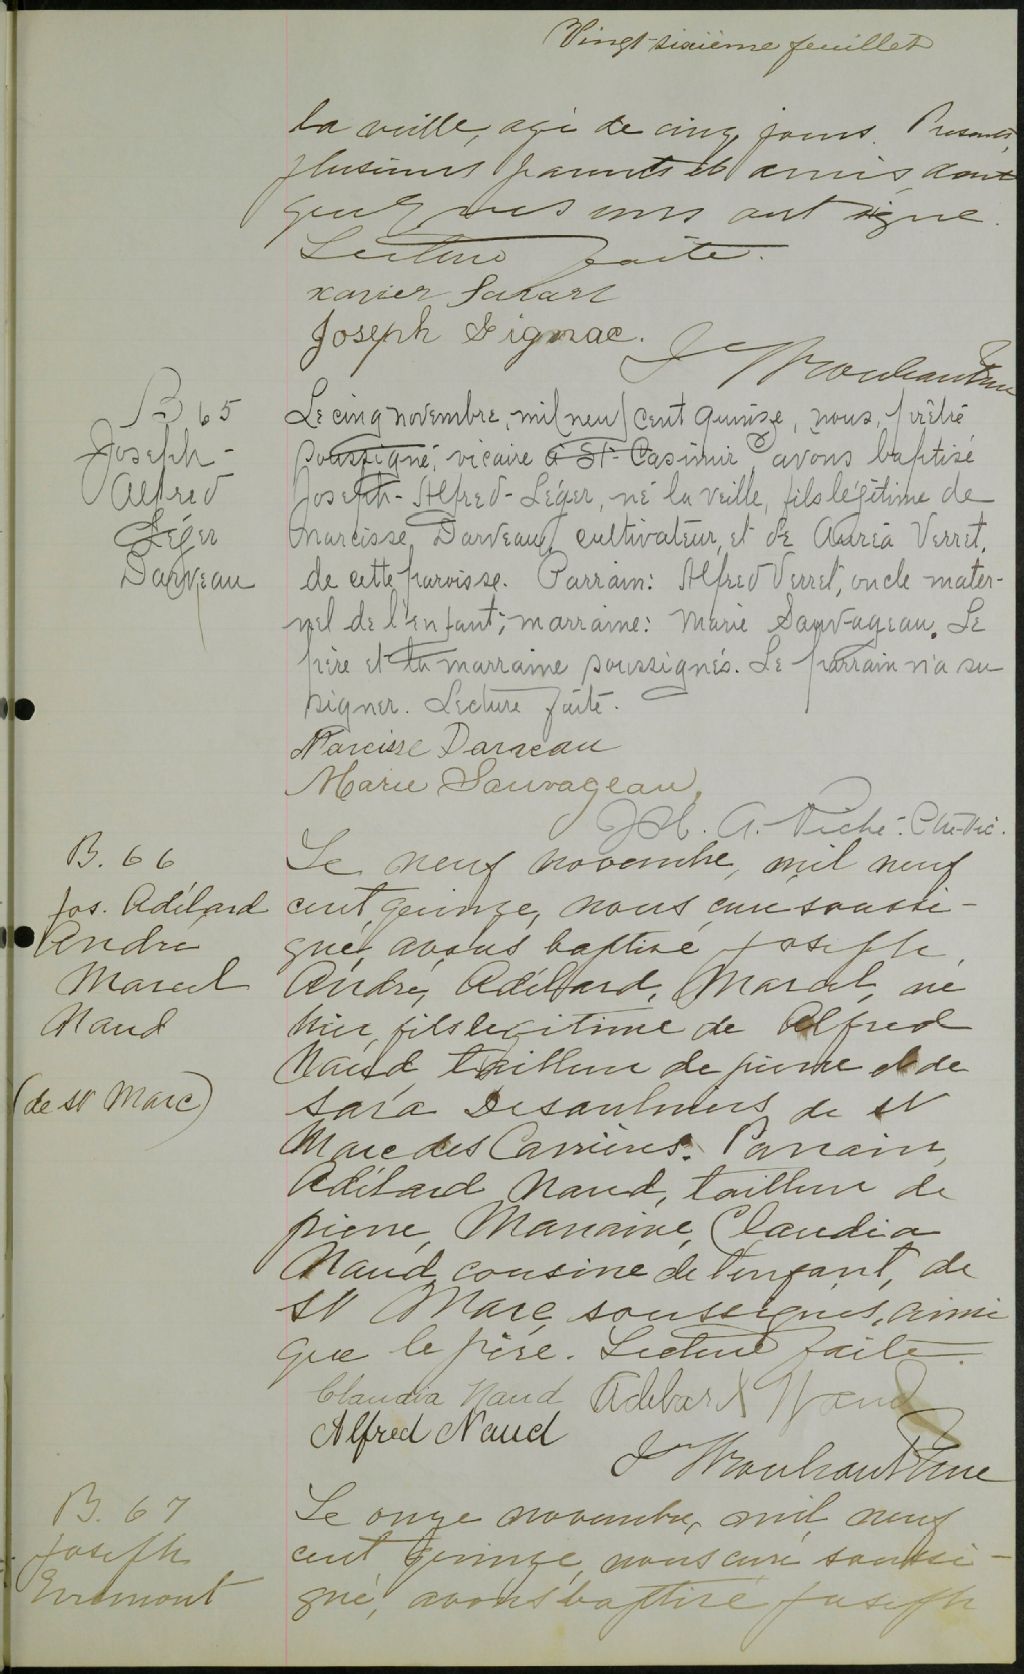 Vingt-sixième feuillet
la veille, agé de cinq jours. Présents,
plusieurs parents et amis dont
quelques uns ont signé.
Lecture faite.
Xavier Savard
Joseph Gignac.
B 65
Joseph-
Alfred
Léger
Darveau
Le cinq novembre, mil neuf cent quinze, nous, prêtre
soussigné, vicaire à St-Casimir, avons baptisé
Joseph-Alfred-Léger, né la veille, fils légitime de
Narcisse Darveau, cultivateur, et de Auréa Verret,
de cette paroisse. Parrain: Alfred Verret, oncle mater-
nel de l'enfant; marraine: Marie Sauvageau. Le
père et la marraine soussignés. Le parrain n'a su
signer. Lecture faite.
Narcisse Darveau
Marie Sauvageau,
J. H. A. Piché. Ptre-Vic.
B. 66
Jos. Adélard
André
Marcel
Naud
(de St Marc)
Le neuf novembre, mil neuf
cent quinze, nous curé soussi-
gné, avons baptisé Joseph,
André, Adélard, Marcel, né
hier, fils legitime de Alfred
Naud, tailleur de pierre et de
Sara Desaulniers de St
Marc des Carrières. Parrain,
Adélard Naud, tailleur de
pierre, Marraine, Claudia
Naud, cousine de l'enfant, de
St Marc, soussignés, ainsi
que le père. Lecture faite.
Claudia Naud Adélard Naud
Alfred Naud
B. 67
Joseph
Evremont
Le onze novembre, mil neuf
cent quinze, nous curé soussi-
gné, avons baptisé Joseph